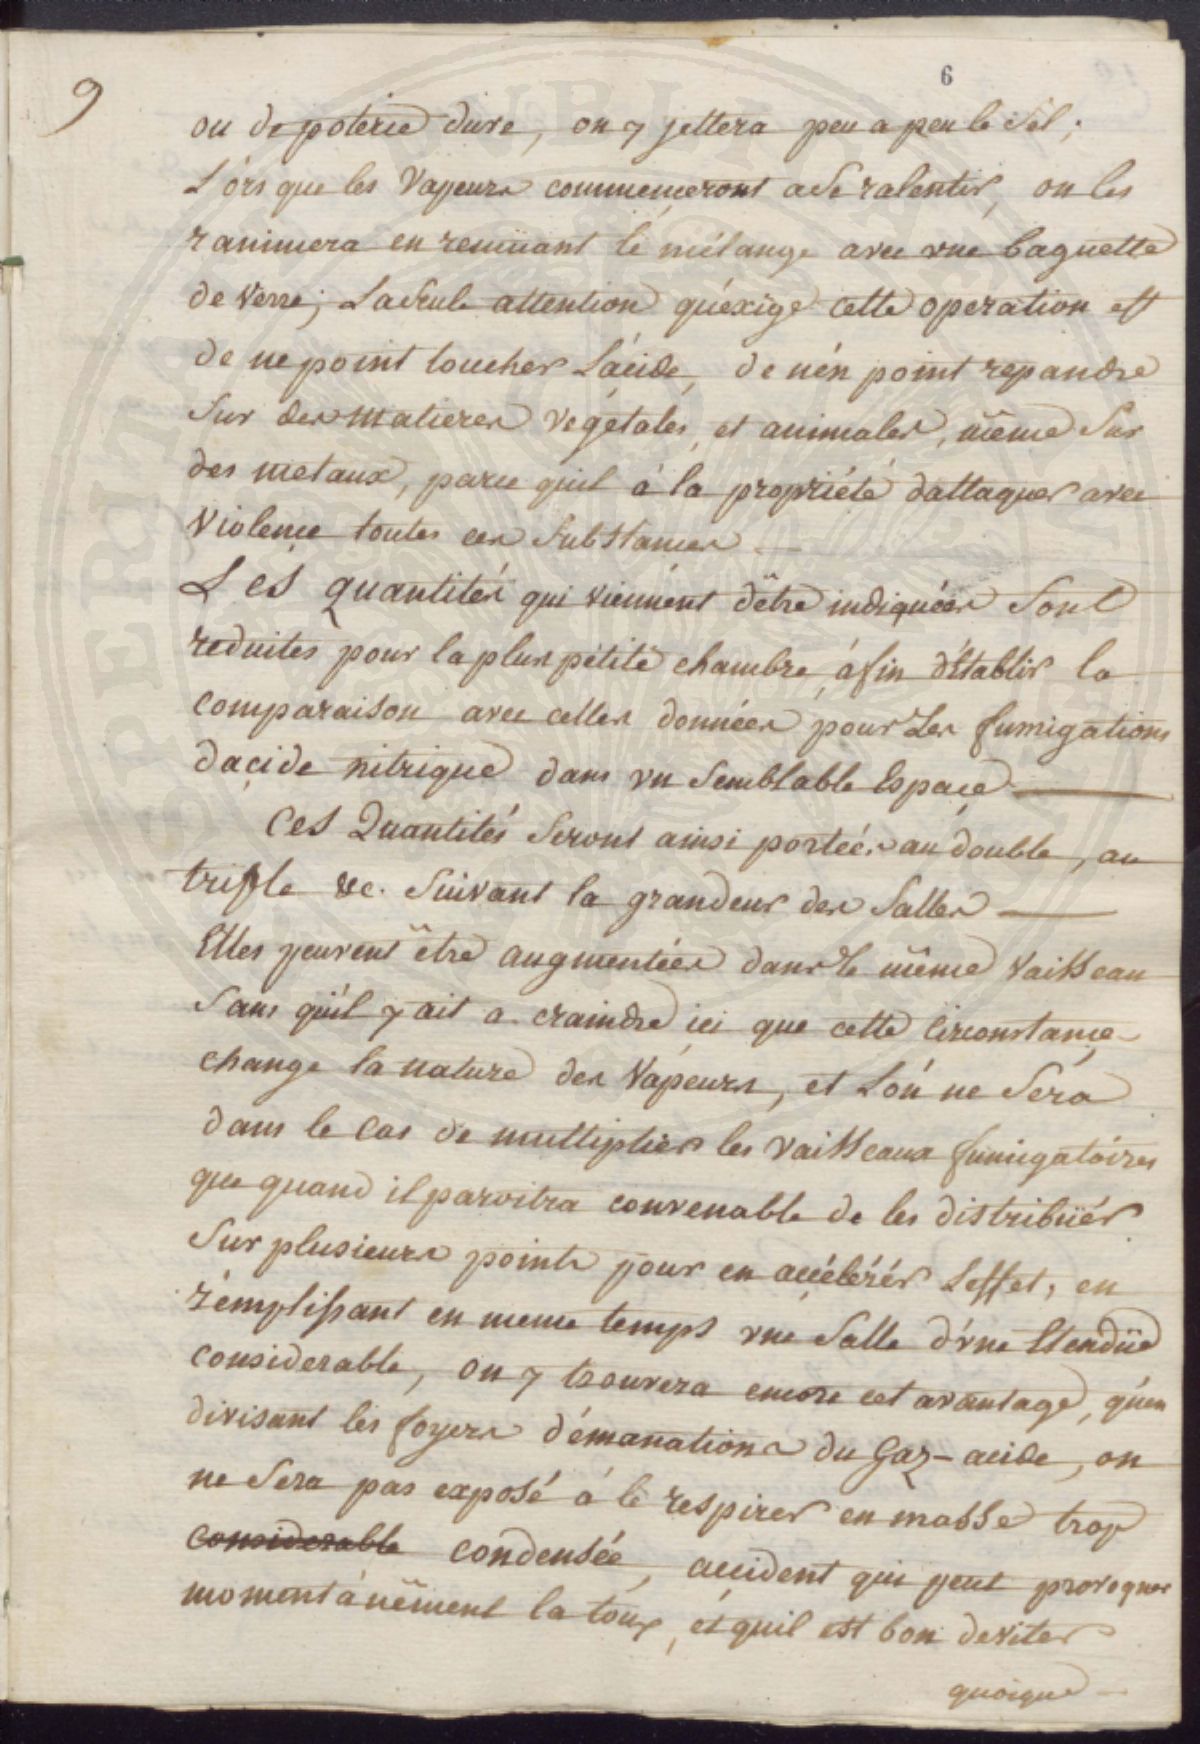 9
6
ou de poterie dure, on y jettera peu a peu le Sel;
L'ors que les Vapeurs commenceront a Se ralentir, on les
ranimera en remüant le mélange avec une baguette
de Verre; La Seule attention qu'éxige cette operation est
de ne point toucher L'ácide, de n'én point repandre
Sur des matieres végétales, et animales, même Sur
des metaux, parce qu'il á la propriété dattaquer avec
Violence toutes ces Substances
Les quantités qui viennent d'être indiquées Sont
reduites pour la plus petite chambre, áfin d'Etablir la
comparaison avec celles données pour Les fumigations
dacide nitrique dans un Semblable Espace
Ces Quantités Seront ainsi portées au double, au
triple &c. Suivant la grandeur des Salles
Elles peuvent être augmentées dans le même Vaisseau
Sans qu'il y ait a craindre ici que cette Circonstance
change la nature des Vapeurs, et L'ón ne Sera
dans le Cas de multiplier les Vaisseaux fumigatóires
que quand il paroitra convenable de les distribüér
Sur plusieurs points pour en accélérér L'effet, en
rémplissant en meme temps une Salle d'une Etendüe
considerable, on y trouvera encore cet avantage, qu'en
divisant les foyers d'émanations du Gaz-acide, on
ne Sera pas exposé á le respirer en masse trop
considerable condensée, accident qui peut provoquer
momentánêment la toux, et quil est bon deviter
quoique